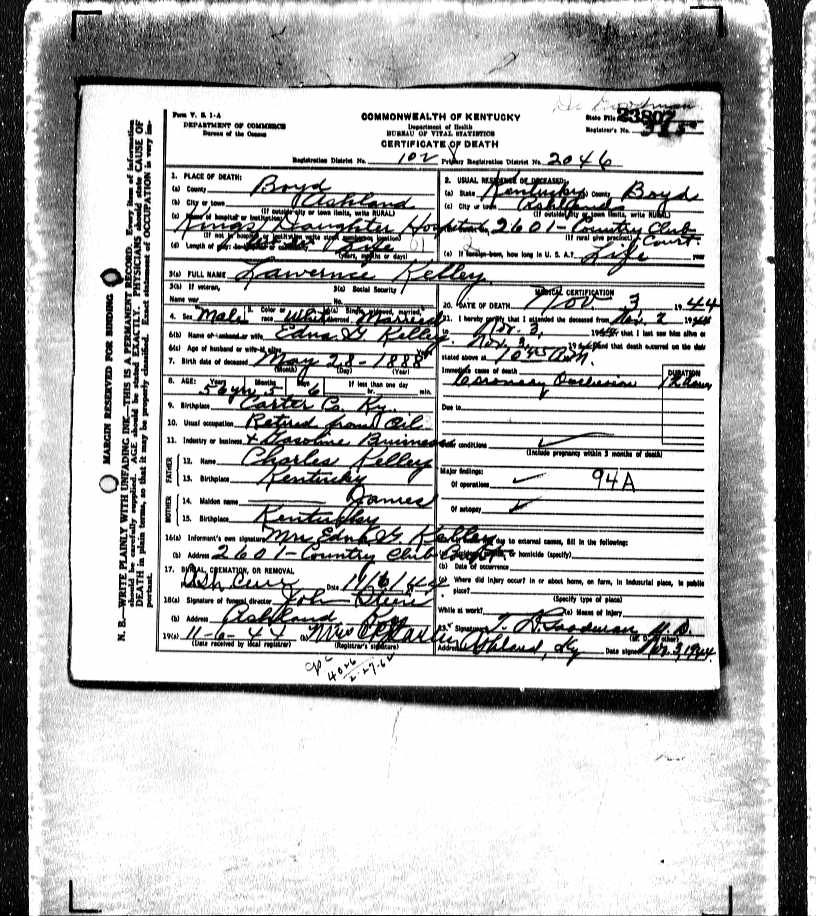 Dr. Goodman
Form V. S. 1-A
DEPARTMENT OF COMMERCE
Bureau of the Census
COMMONWEALTH OF KENTUCKY
Department of Health
BUREAU OF VITAL STATISTICS
CERTIFICATE OF DEATH
State File 23807
Registrar's No.
Registration District No. 102 Primary Registration District No. 2046
MARGIN RESERVED FOR BINDING
N. B.—WRITE PLAINLY WITH UNFADING INK—THIS IS A PERMANENT RECORD. Every item of information
should be carefully supplied. AGE should be stated EXACTLY. PHYSICIANS should state CAUSE OF
DEATH in plain terms, so that it may be properly classified. Exact statement of OCCUPATION is very im-
portant.
1. PLACE OF DEATH:
(a) County Boyd
(b) City or town Ashland
(If outside city or town limits, write RURAL)
(c) Name of hospital or institution:
Kings Daughter Hospital
(If not in hospital or institution write street number or location)
(d) Length of stay: Life
(years, months or days)
2. USUAL RESIDENCE OF DECEASED:
(a) State Kentucky County Boyd
(c) City or town Ashland
(If outside city or town limits, write RURAL)
2601-Country Club
Court.
(If rural give precinct)
(e) If foreign-born, how long in U. S. A.? Life year
3(a) FULL NAME Lawernce Kelley
3(b) If veteran,
Name war
3(c) Social Security
No.
4. Sex Male 5. Color or race White 6(a) Single, widowed, married, divorced Married
6(b) Name of husband or wife Edna G Kelley
6(c) Age of husband or wife if alive
7. Birth date of deceased May 28-1888
(Month) (Day) (Year)
8. AGE: Years Months Days If less than one day
56 yrs 5 6 hr. min.
9. Birthplace Carter Co. Ky.
10. Usual occupation Retired from Oil
11. Industry or business + Gasoline Business
FATHER
12. Name Charles Kelley
13. Birthplace Kentucky
MOTHER
14. Maiden name James
15. Birthplace Kentucky
16(a) Informant's own signature Mrs Edna G. Kelley
(b) Address 2601-Country Club Court
17. BURIAL, CREMATION, OR REMOVAL
Ash Cem Date 11/6/44
18(a) Signature of funeral director John Steen
(b) Address Ashland Ky
19(a) 11-6-44 (b)
(Date received by local registrar) (Registrar's signature)
MEDICAL CERTIFICATION
20. DATE OF DEATH Nov 3 1944
21. I hereby certify that I attended the deceased from Nov. 2 1944
to Nov. 3, 1944, that I last saw him alive on
Nov. 3, 1944 and that death occurred on the date
stated above at 10:45 A.M.
Immediate cause of death DURATION
Coronary Occlusion
Due to
Other conditions
(Include pregnancy within 3 months of death)
Major findings:
Of operations 94A
Of autopsy
22. If death was due to external causes, fill in the following:
(a) Accident, suicide, or homicide (specify)
(b) Date of occurrence
(c) Where did injury occur? In or about home, on farm, in industrial place, in public
place?
(Specify type of place)
While at work? (e) Means of injury
23. Signature T. D. Goodman M. D.
(M. D. or other)
Address Ashland, Ky Date signed Nov. 3, 1944